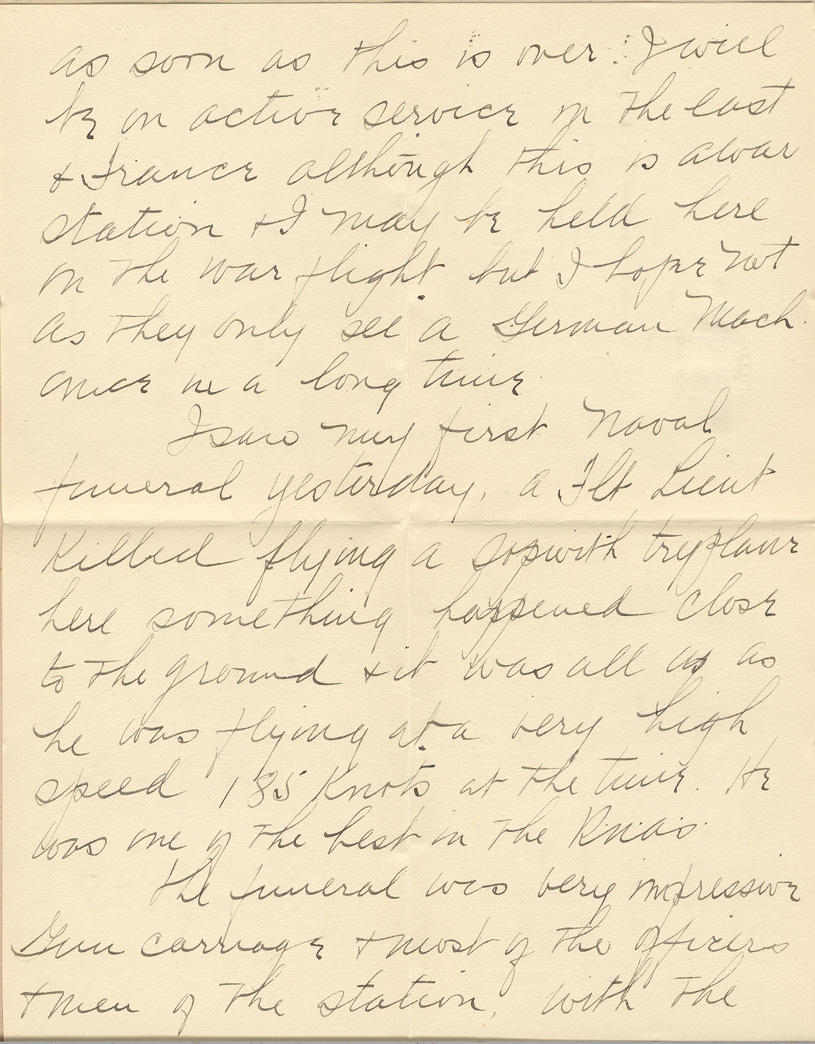 as soon as this is over. I will
be on active service in the East
& France although this is a war
station & I may be held here
on the war flight but I hope not
as they only see a German Mach.
once in a long time.
I saw my first Naval
funeral yesterday, a Flt Lieut
Killed flying a sopwith tryplane
here something happened close
to the ground & it was all up as
he was flying at a very high
speed 185 Knots at the time. He
was one of the best in the R.N.A.S.
The funeral was very impressive
Gun carriage & most of the officers
& men of the station, with the